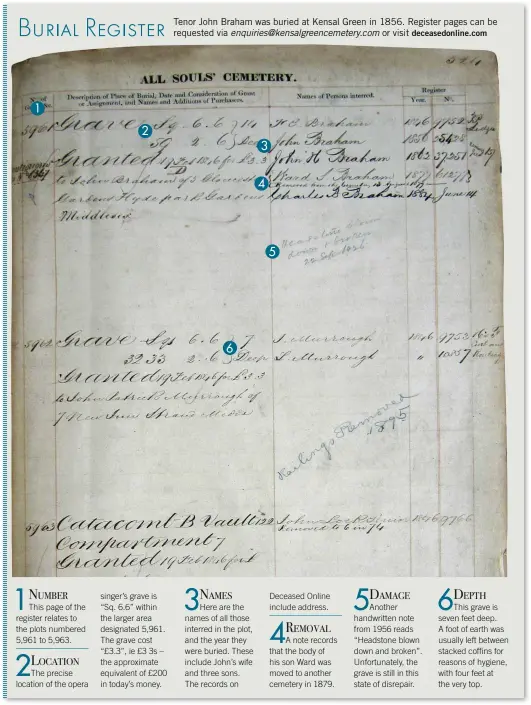 BURIAL REGISTER
Tenor John Braham was buried at Kensal Green in 1856. Register pages can be
requested via enquiries@kensalgreencemetery.com or visit deceasedonline.com
ALL SOULS' CEMETERY.
Description of Place of Burial, Date and Consideration of Grant
or Assignment, and Names and Additions of Purchasers.
Names of Persons interred.
Register
Year. No.
1
Grave Sq. 6.6 14
2
2.6 Deep
3
John Braham
Granted
John H Braham
to John Braham of
4
Ward S Braham
Gardens Hyde park Gardens
Charles B Braham 1884 June 14
Middlesex
5
Headstone blown
down & broken
5962 Grave Sqs 6.6 7
Murrough
3233 2.6 Deep
6
Murrough
Granted 19 Feb 1846 for £3.3
to John Patrick Murrough of
7 New Inn Strand Middx
Railings Removed
1895
5963 Catacomb B Vault 122
Compartment 7
Granted 19 Feb 1846 for £
1 NUMBER
This page of the
register relates to
the plots numbered
5,961 to 5,963.
2 LOCATION
The precise
location of the opera
singer's grave is
“Sq. 6.6” within
the larger area
designated 5,961.
The grave cost
“£3.3”, ie £3 3s –
the approximate
equivalent of £200
in today's money.
3 NAMES
Here are the
names of all those
interred in the plot,
and the year they
were buried. These
include John's wife
and three sons.
The records on
Deceased Online
include address.
4 REMOVAL
A note records
that the body of
his son Ward was
moved to another
cemetery in 1879.
5 DAMAGE
Another
handwritten note
from 1956 reads
“Headstone blown
down and broken”.
Unfortunately, the
grave is still in this
state of disrepair.
6 DEPTH
This grave is
seven feet deep.
A foot of earth was
usually left between
stacked coffins for
reasons of hygiene,
with four feet at
the very top.